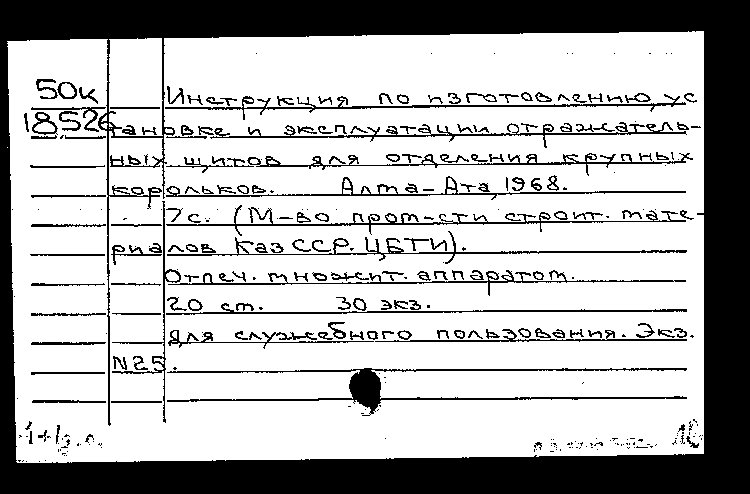 50к
18526
Инструкция по изготовлению, ус
тановке и эксплуатации отражатель-
ных щитов для отделения крупных
корольков. Алма-Ата, 1968.
7с. (М-во пром-сти строит. мате-
риалов КазССР. ЦБТИ).
Отпеч. множит. аппаратом.
20 см. 30 экз.
Для служебного пользования. Экз.
N25.